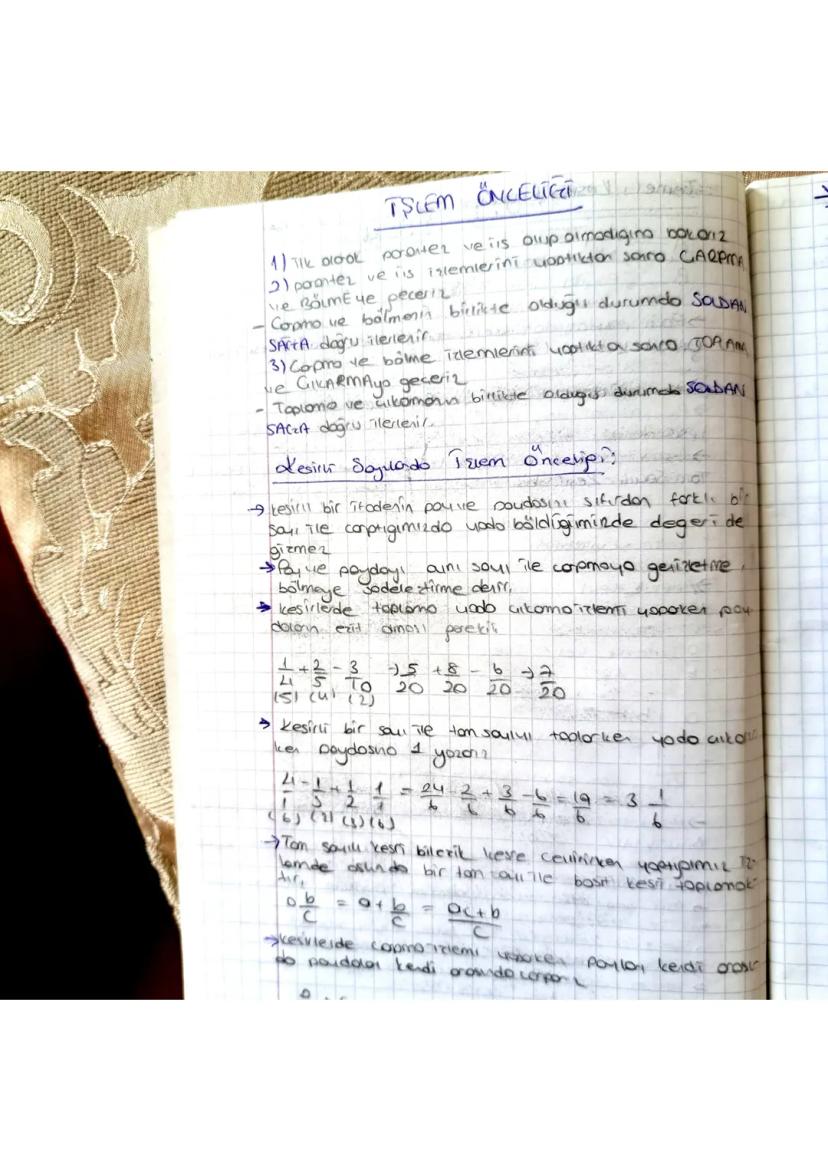 İŞLEM ÖNCELİĞİ
1) İlk olarak parantez ve üs olup olmadığına bakarız
2) parantez ve üs işlemlerini yaptıktan sonra ÇARPMA
ve BÖLMEye geçeriz
- Çarpma ve bölmenin birlikte olduğu durumda SOLDAN
SAĞA doğru ilerlenir
3) Çarpma ve bölme işlemlerini yaptıkta sonra TOPLAMA
ve ÇIKARMAya geçeriz
- Toplama ve çıkarmanın birlikte olduğu durumda SOLDAN
SAĞA doğru ilerlenir.
Kesirli Sayılarda İşlem Önceliği:
→ kesirli bir ifadenin pay ve paydasını sıfırdan farklı bir
sayı ile çarptığımızda yada böldüğümüzde değeri de
ğişmez
→ Pay ve paydayı aynı sayı ile çarpmaya genişletme,
bölmeye sadeleştirme denir.
→ kesirlerde toplama yada çıkarma işlemi yaparken pay
daların eşit olması gerekir
1/4 + 2/5 - 3/10 → 5/20 + 8/20 - 6/20 → 7/20
(5) (4) (2)
→ Kesirli bir sayı ile tam sayıyı toplarken yada çıkarır
ken paydasına 1 yazarız
4/1 - 1/3 + 1/2 - 1/1 = 24/6 - 2/6 + 3/6 - 6/6 = 19/6 = 3 1/6
(6) (2) (3) (6)
→ Tam sayılı kesri bileşik kesre çevirirken yaptığımız iş
lemde aslında bir tam sayı ile basit kesri toplamak
tır.
a b/c = a + b/c = ac+b/c
→ kesirlerde çarpma işlemi yaparken paylar kendi arasın
da paydalar kendi arasında çarpılır